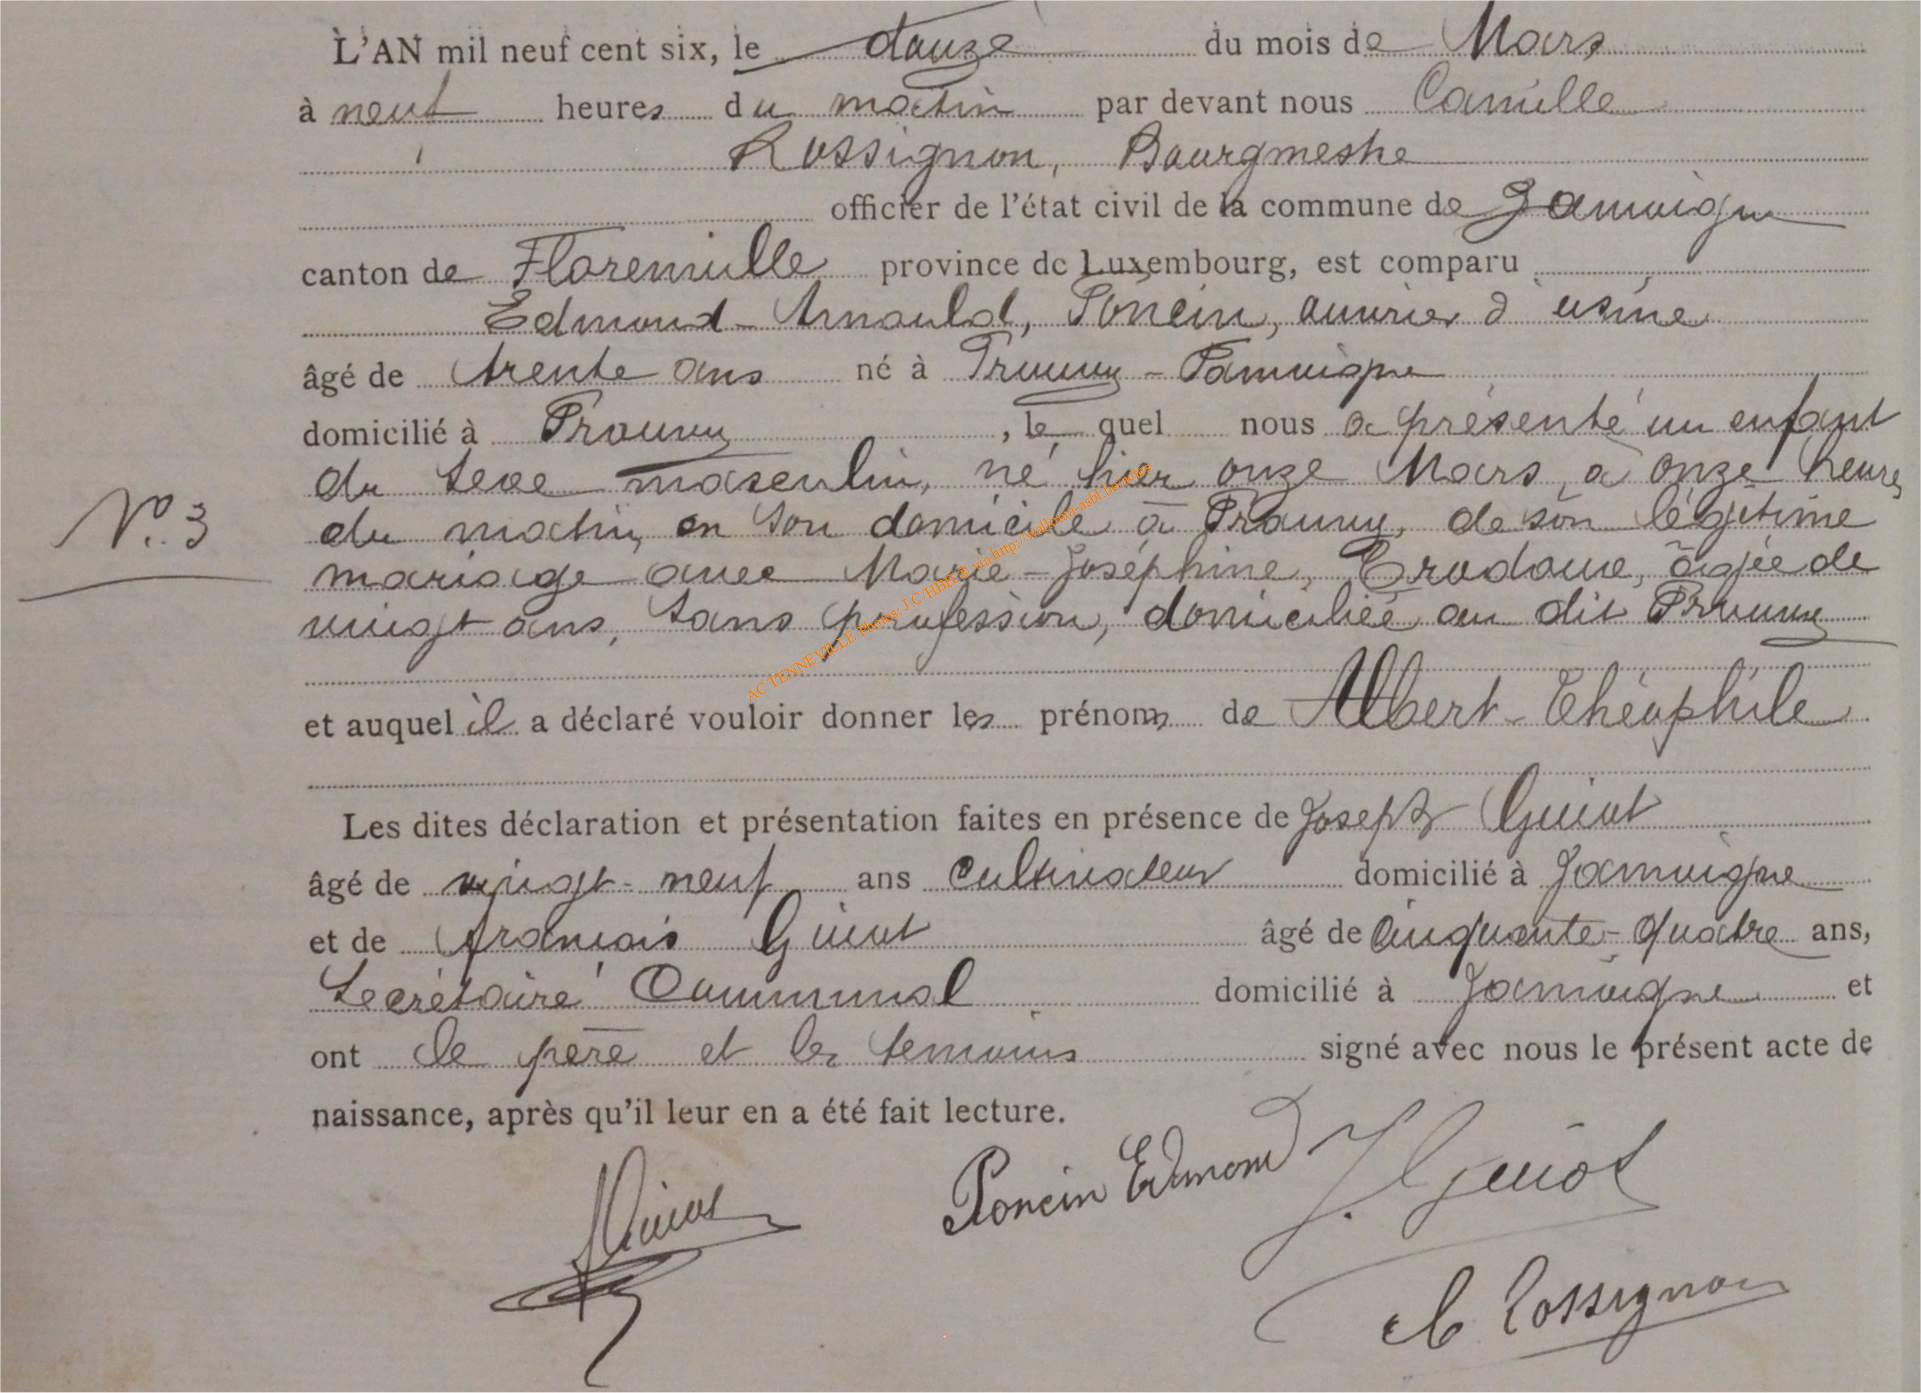 L'AN mil neuf cent six, le douze du mois de Mars
à neuf heures du matin par devant nous Camille
Rossignon, Bourgmestre
officier de l'état civil de la commune de Jamoigne
canton de Florenville province de Luxembourg, est comparu
Edmond-Arnould, Poncin, ouvrier d'usine
âgé de trente ans né à Prouvy-Jamoigne
domicilié à Prouvy, le quel nous a présenté un enfant
du sexe masculin, né hier onze Mars, à onze heures
N°. 3
du matin, en son domicile à Prouvy, de son légitime
mariage avec Marie-Joséphine, âgée de
vingt ans, sans profession, domiciliée au dit Prouvy
et auquel il a déclaré vouloir donner les prénoms de Albert-Théophile
Les dites déclaration et présentation faites en présence de Joseph Guiot
âgé de vingt-neuf ans cultivateur domicilié à Jamoigne
et de François Guiot âgé de cinquante-quatre ans,
Secrétaire Communal domicilié à Jamoigne et
ont le père et les témoins signé avec nous le présent acte de
naissance, après qu'il leur en a été fait lecture.
Guiot Poncin Edmond J. Guiot
C Rossignon